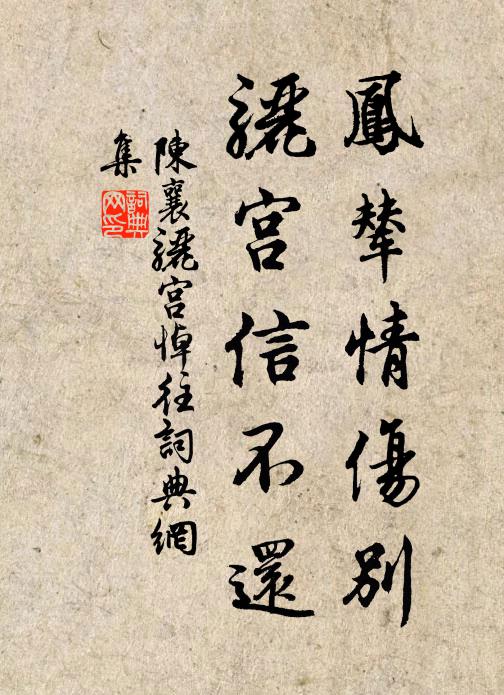 鳳輦情傷別
驪宮信不還
陳襄驪宮悼往詞典網
集
詞典
网印